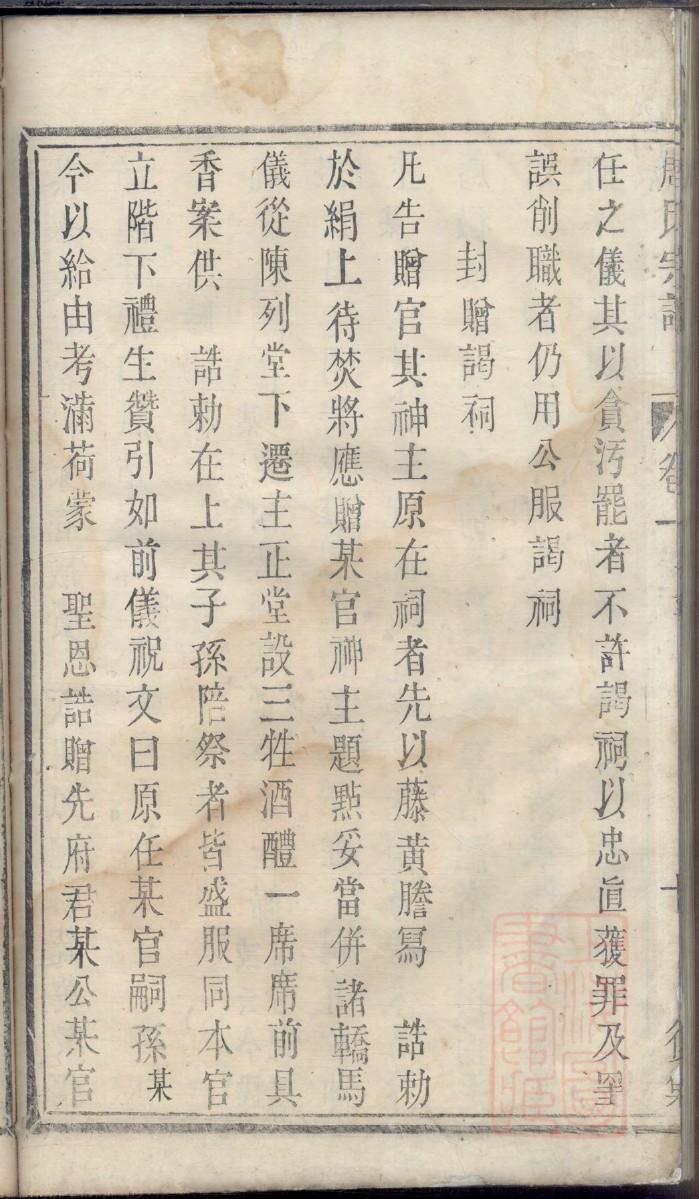 周氏宗譜 卷一
任之儀其以貪汚罷者不許謁祠以忠直獲罪及罣
誤削職者仍用公服謁祠
封贈謁祠
凡告贈官其神主原在祠者先以藤黃謄寫 誥勅
於絹上待焚將應贈某官神主題㸃妥當併諸轎馬
儀從陳列堂下遷主正堂設三牲酒醴一席席前具
香案供 誥勅在上其子孫陪祭者皆盛服同本官
立階下禮生贊引如前儀祝文曰原任某官嗣孫某
今以給由考滿荷蒙 聖恩誥贈先府君某公某官